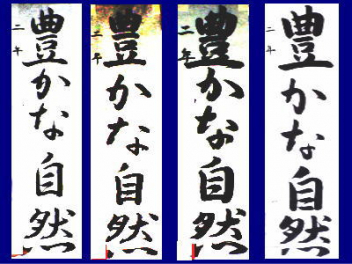 豊かな自然
二年
豊かな自然
二年
豊かな自然
二年
豊かな自然
二年